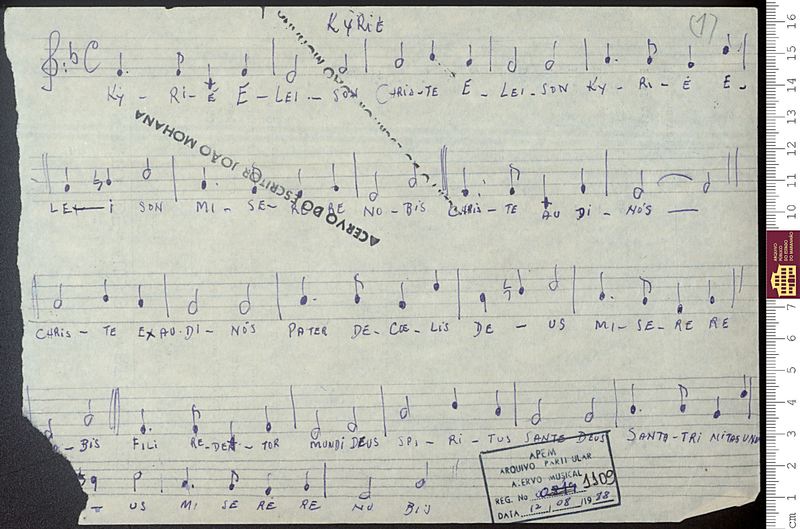 KYRIE
(1)
KY - RI - É E - LEI - SON CHRIS-TE E - LEI - SON KY - RI - É E -
LE I SON MI - SE - RE RE NO - BIS CHRIS - TE AU DI - NÓS
ACERVO DO ESCRITOR JOÃO MOHANA
CHRIS - TE EXAU-DI - NÓS PATER DE - COE - LIS DE - US MI - SE - RE RE
BIS FILI RE-DEN-TOR MUNDI DEUS SPI - RI - TUS SANTE DEUS SANTA-TRI NITAS UNU
US MI SE RE RE NO BIS
APEM
ARQUIVO PARTICULAR
ACERVO MUSICAL
REG. NO 0819 1109
DATA 12 / 08 / 1988
cm 1 2 3 4 5 6 7 10 11 12 13 14 15 16